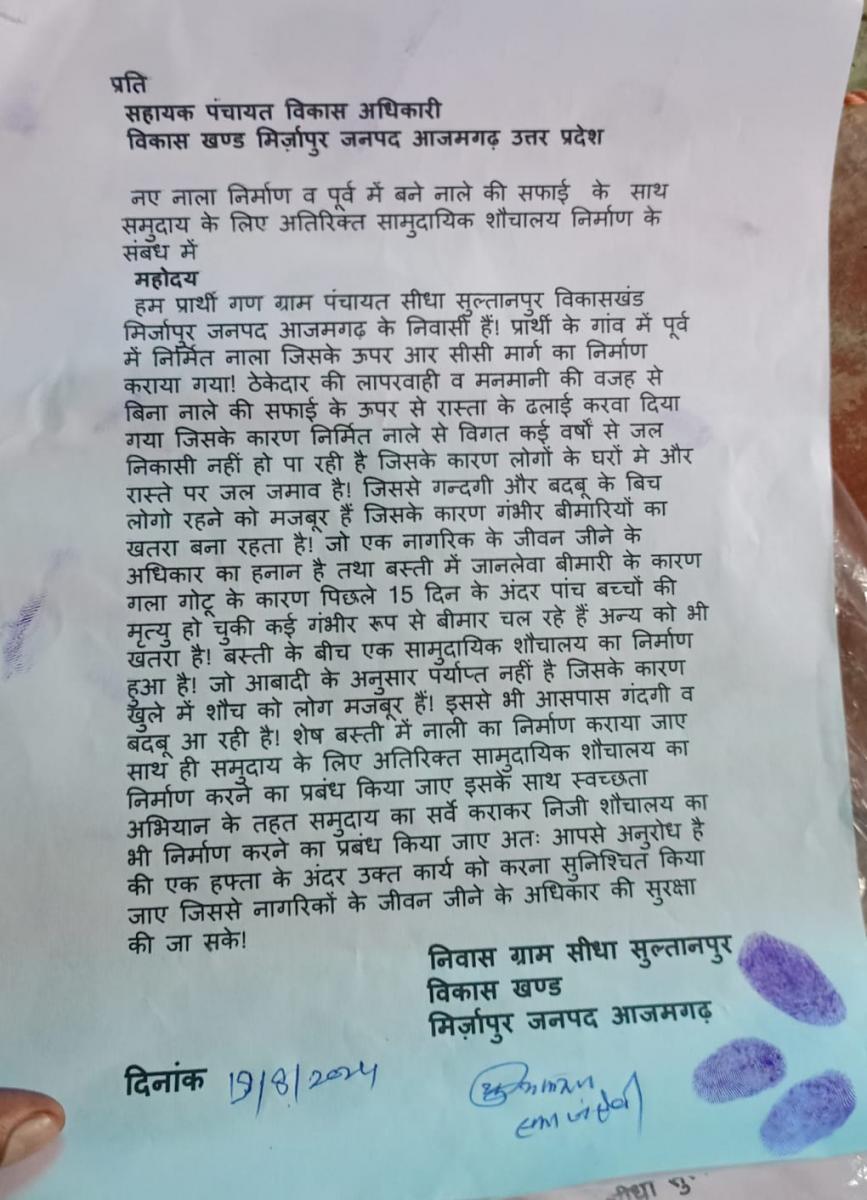 प्रति
सहायक पंचायत विकास अधिकारी
विकास खण्ड मिर्ज़ापुर जनपद आजमगढ़ उत्तर प्रदेश
नए नाला निर्माण व पूर्व में बने नाले की सफाई के साथ
समुदाय के लिए अतिरिक्त सामुदायिक शौचालय निर्माण के
संबंध में
महोदय
हम प्रार्थी गण ग्राम पंचायत सीधा सुल्तानपुर विकासखंड
मिर्जापुर जनपद आजमगढ़ के निवासी हैं! प्रार्थी के गांव में पूर्व
में निर्मित नाला जिसके ऊपर आर सीसी मार्ग का निर्माण
कराया गया! ठेकेदार की लापरवाही व मनमानी की वजह से
बिना नाले की सफाई के ऊपर से रास्ता के ढलाई करवा दिया
गया जिसके कारण निर्मित नाले से विगत कई वर्षों से जल
निकासी नहीं हो पा रही है जिसके कारण लोगों के घरों मे और
रास्ते पर जल जमाव है! जिससे गन्दगी और बदबू के बिच
लोगो रहने को मजबूर हैं जिसके कारण गंभीर बीमारियों का
खतरा बना रहता है! जो एक नागरिक के जीवन जीने के
अधिकार का हनान है तथा बस्ती में जानलेवा बीमारी के कारण
गला गोटू के कारण पिछले 15 दिन के अंदर पांच बच्चों की
मृत्यु हो चुकी कई गंभीर रूप से बीमार चल रहे हैं अन्य को भी
खतरा है! बस्ती के बीच एक सामुदायिक शौचालय का निर्माण
हुआ है! जो आबादी के अनुसार पर्याप्त नहीं है जिसके कारण
खुले में शौच को लोग मजबूर हैं! इससे भी आसपास गंदगी व
बदबू आ रही है! शेष बस्ती में नाली का निर्माण कराया जाए
साथ ही समुदाय के लिए अतिरिक्त सामुदायिक शौचालय का
निर्माण करने का प्रबंध किया जाए इसके साथ स्वच्छता
अभियान के तहत समुदाय का सर्वे कराकर निजी शौचालय का
भी निर्माण करने का प्रबंध किया जाए अतः आपसे अनुरोध है
की एक हफ्ता के अंदर उक्त कार्य को करना सुनिश्चित किया
जाए जिससे नागरिकों के जीवन जीने के अधिकार की सुरक्षा
की जा सके!
निवास ग्राम सीधा सुल्तानपुर
विकास खण्ड
मिर्ज़ापुर जनपद आजमगढ़
दिनांक 19/8/2024